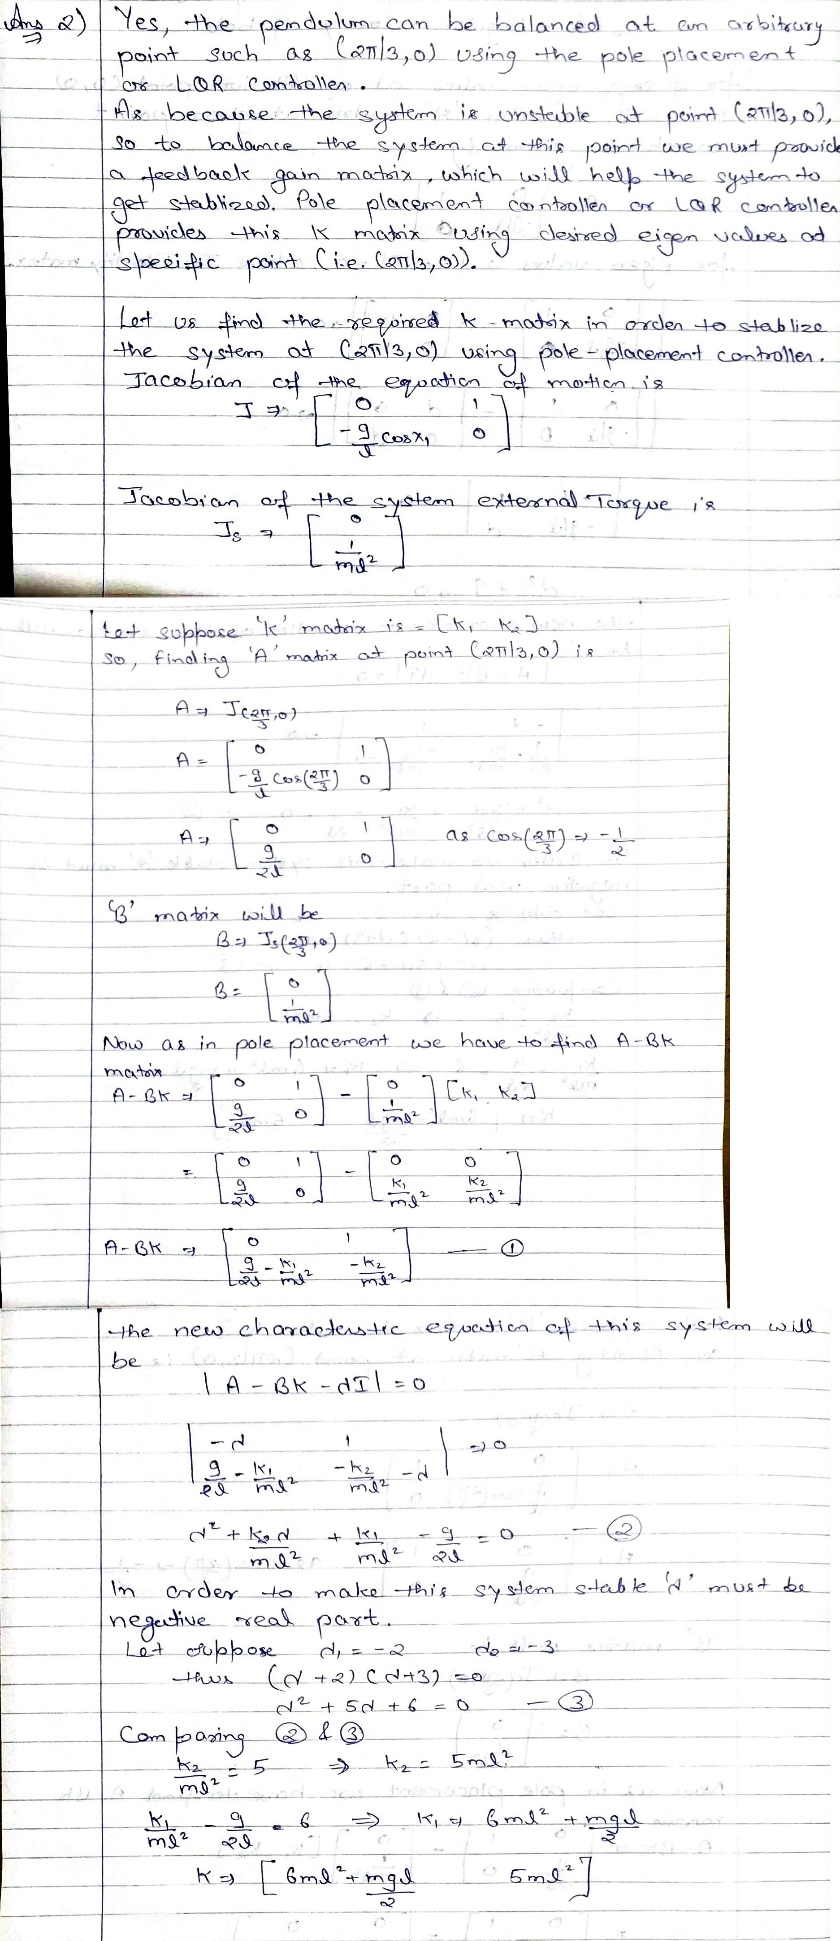 Ans 2) Yes, the pendulum can be balanced at an arbitrary
⇒ point such as (2π/3,0) using the pole placement
or LQR controller.
As because the system is unstable at point (2π/3,0),
so to balance the system at this point we must provide
a feedback gain matrix, which will help the system to
get stablized. Pole placement controller or LQR controller
provides this K matrix using desired eigen values at
specific point (i.e. (2π/3,0)).
Let us find the required k-matrix in order to stablize
the system at (2π/3,0) using pole-placement controller.
Jacobian of the equation of motion is
J ⇒ [ 0 1
-g/l cosx₁ 0 ]
Jacobian of the system external Torque is
Js ⇒ [ 0
1/ml² ]
Let suppose 'K' matrix is = [K₁ K₂]
so, finding 'A' matrix at point (2π/3,0) is
A ⇒ J(2π/3,0)
A = [ 0 1
-g/l cos(2π/3) 0 ]
A ⇒ [ 0 1
g/2l 0 ] as cos(2π/3) ⇒ -1/2
'B' matrix will be
B ⇒ Js(2π/3,0)
B = [ 0
1/ml² ]
Now as in pole placement we have to find A-BK
matrix
A-BK ⇒ [ 0 1
g/2l 0 ] - [ 0
1/ml² ] [K₁ K₂]
= [ 0 1
g/2l 0 ] - [ 0 0
K₁/ml² K₂/ml² ]
A-BK ⇒ [ 0 1
g/2l - K₁/ml² -K₂/ml² ] — ①
the new characterstic equation of this system will
be
|A-BK-λI| = 0
| -λ 1
g/2l - K₁/ml² -K₂/ml² - λ | ⇒ 0
λ² + K₂λ/ml² + K₁/ml² - g/2l = 0 — ②
In order to make this system stable 'λ' must be
negative real part.
Let suppose λ₁ = -2 λ₂ = -3
thus (λ+2)(λ+3) = 0
λ² + 5λ + 6 = 0 — ③
Comparing ② & ③
K₂/ml² = 5 ⇒ K₂ = 5ml²
K₁/ml² - g/2l = 6 ⇒ K₁ ⇒ 6ml² + mgl/2
K ⇒ [ 6ml² + mgl/2 5ml² ]